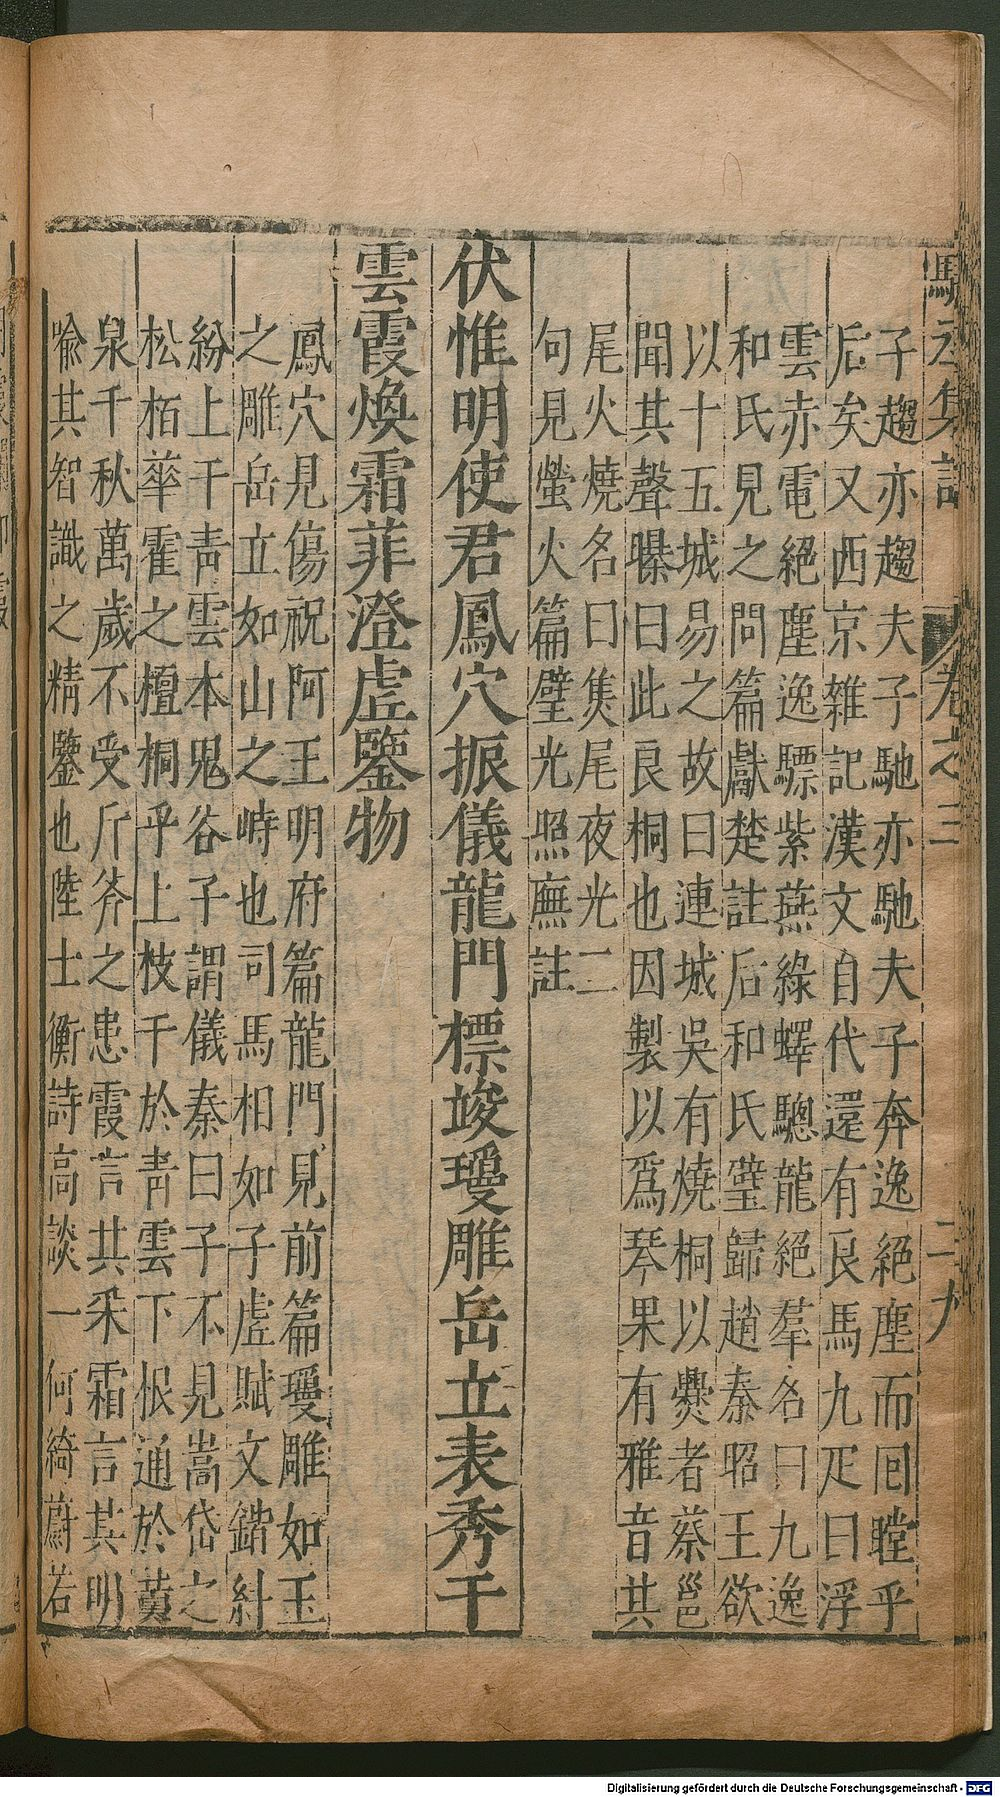 駱丞集註 卷之三 二九
子趨亦趨夫子馳亦馳夫子奔逸絕塵而囘瞠乎
后矣又西京雜記漢文自代還有良馬九疋曰浮
雲赤電絕塵逸驃紫燕綠螭驄龍絕羣名曰九逸
和氏見之問篇獻楚註后和氏璧歸趙秦昭王欲
以十五城易之故曰連城吳有燒桐以爨者蔡邕
聞其聲曝曰此良桐也因製以爲琴果有雅音其
尾火燒名曰焦尾夜光二
句見螢火篇璧光照廡註
伏惟明使君鳳穴振儀龍門標竣璦雕岳立表秀干
雲霞煥霜菲澄虛鑒物
鳳穴見傷祝阿王明府篇龍門見前篇璦雕如玉
之雕岳立如山之峙也司馬相如子虛賦文錯糾
紛上干靑雲本鬼谷子謂儀秦曰子不見嵩岱之
松栢華霍之檀桐乎上枝干於靑雲下根通於黃
泉千秋萬歲不受斤斧之患霞言共采霜言其明
喩其智識之精鑒也陸士衡詩高談一何綺蔚若
Digitalisierung gefördert durch die Deutsche Forschungsgemeinschaft - DFG